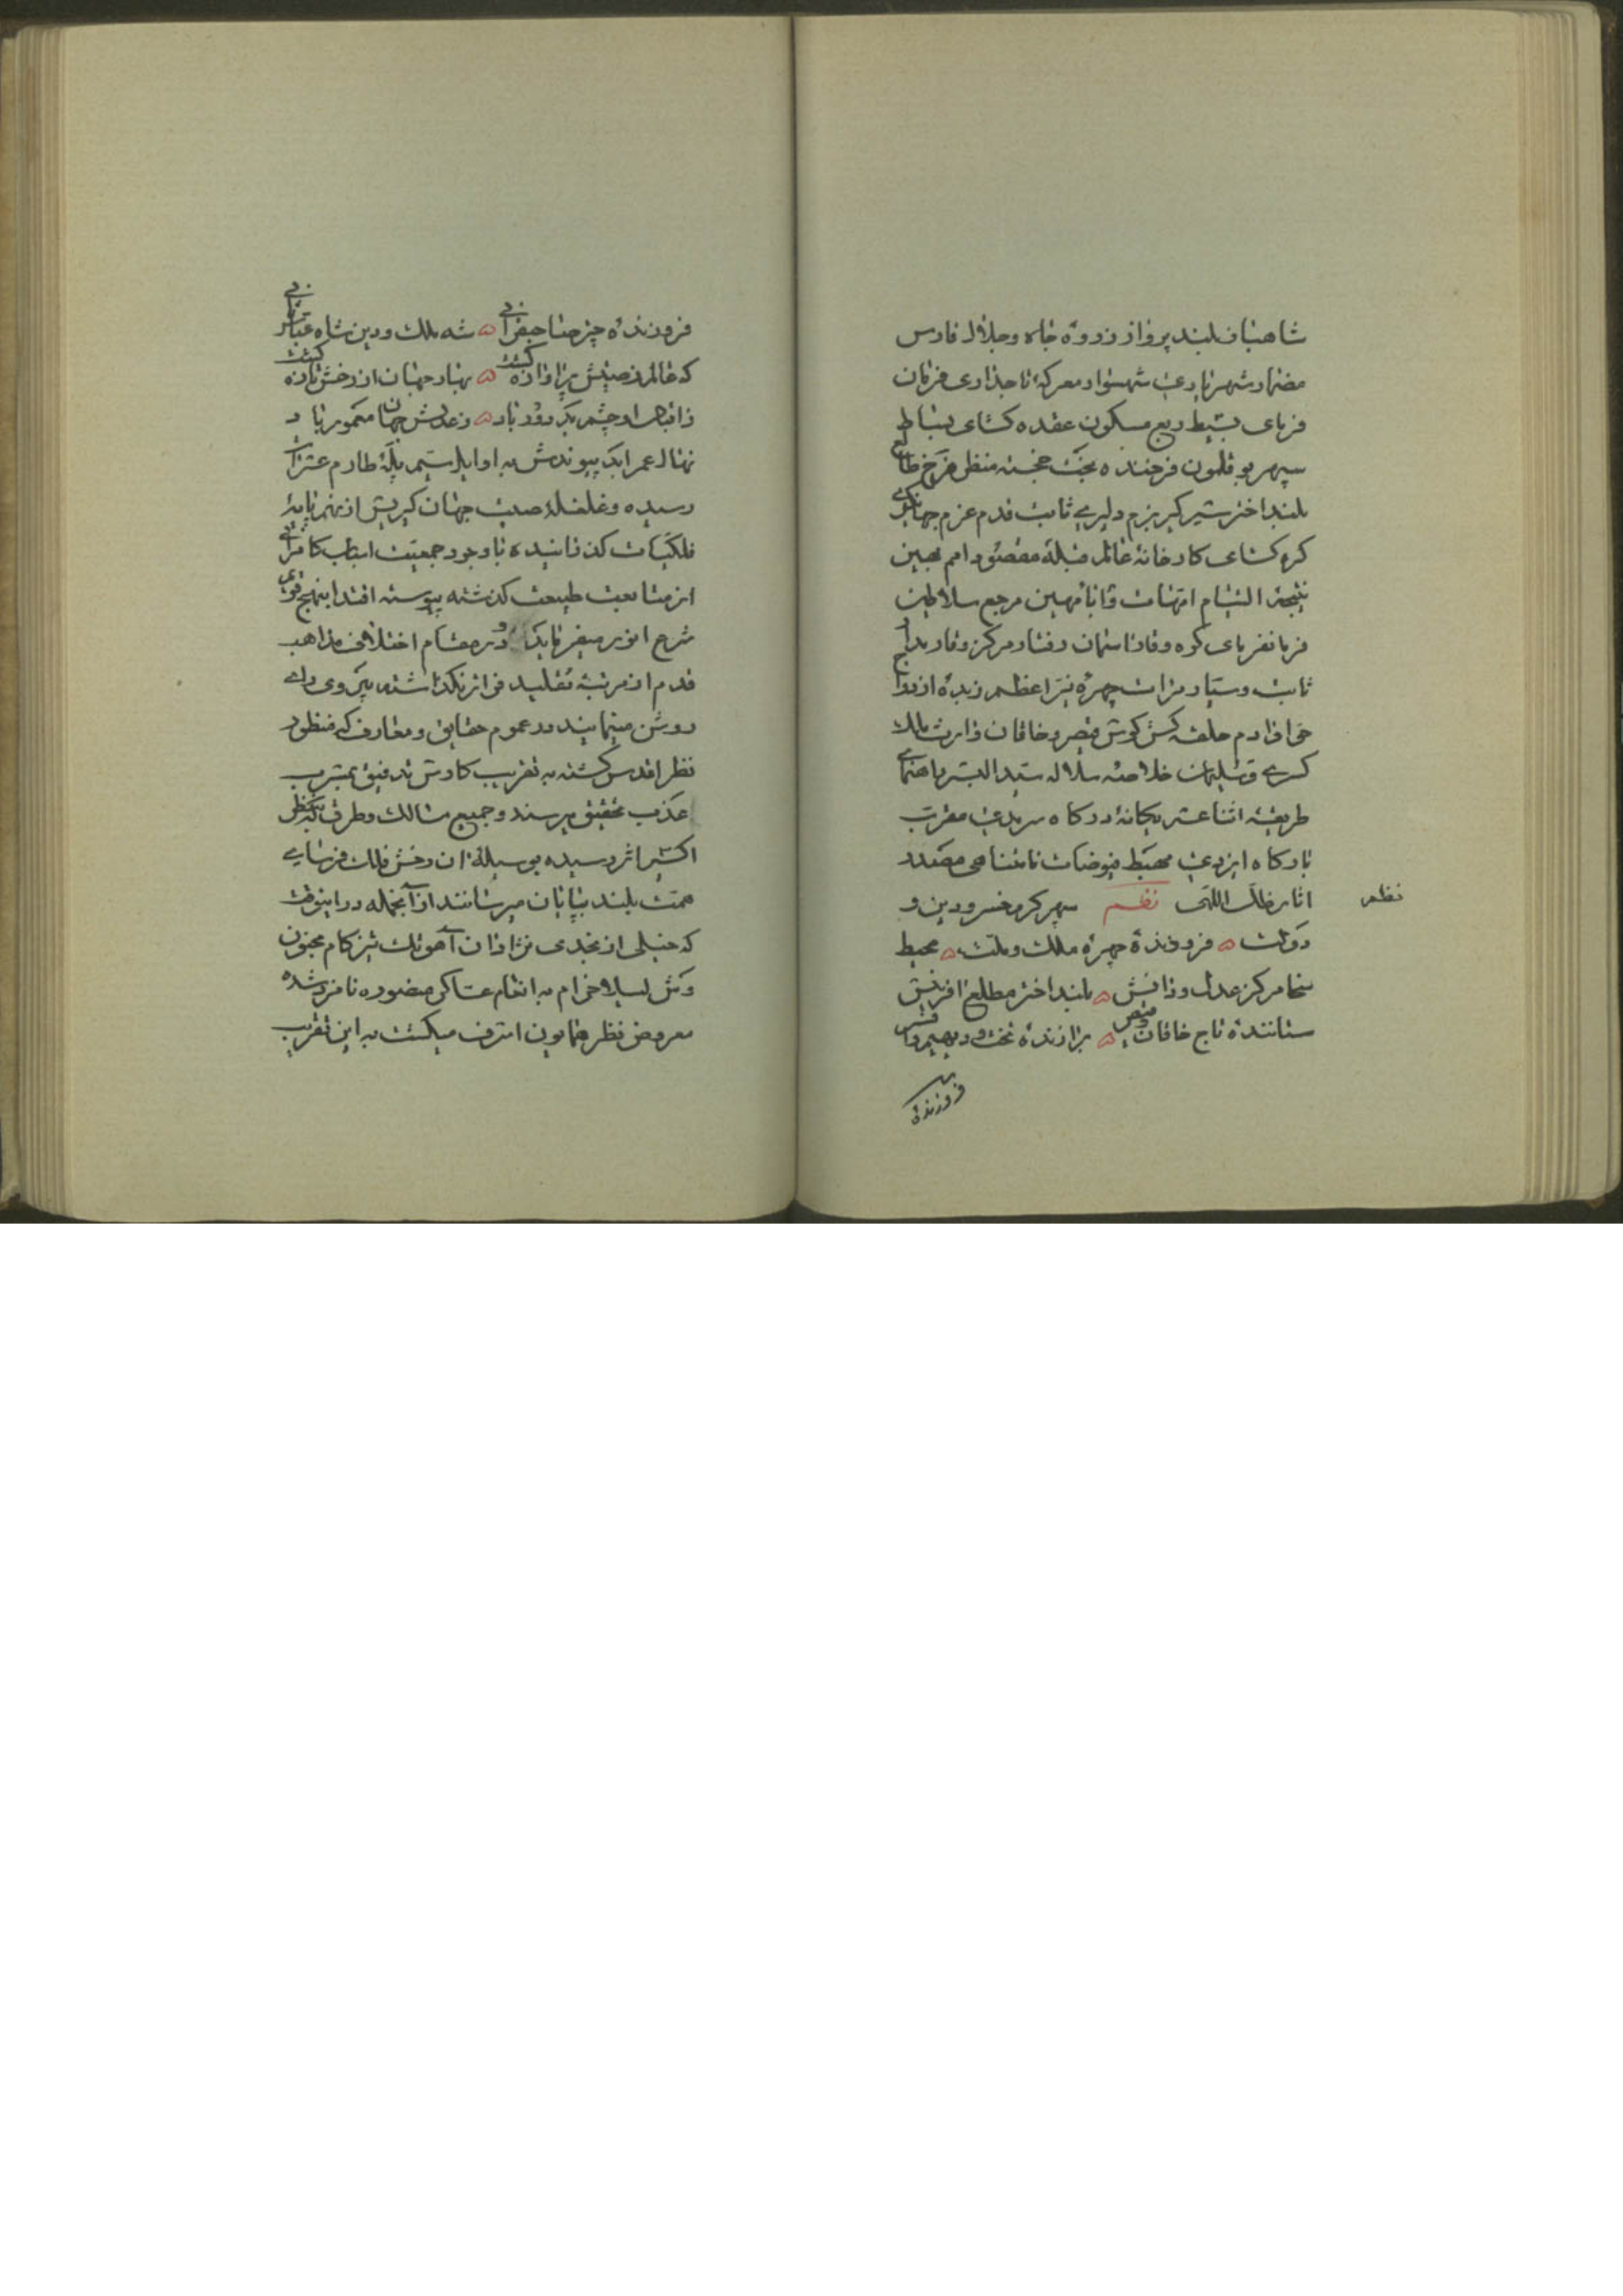 شاهباز بلند پرواز ذروهٔ جاه و جلال فارس
مضمار شهریاری شهسوار معرکهٔ تاجداری فرمان
فرمای بسیط ربع مسکون عقده کشای بساط
سپهر بوقلمون فرخنده بخت خجسته منظر فرخ طالع
بلند اختر شیر کیر بزم دلیری ثابت قدم عزم جهانکیری
کره کشای کارخانهٔ عالم قبلهٔ مقصود امم بهین
نتیجهٔ التیام امهات و ابا مهین مرجع سلاطین
فرمانفرمای کوه وقار اسمان رفتار مرکز وقار مدار
ثابت و سیار مرات چهرهٔ نیر اعظم زبدهٔ ازدواج
حوا و ادم حلقه کش کوش قیصر و خاقان وارث ملک
کسری و سلیمان خلاصه سلاله سید البشر راهنمای
طریقهٔ اثنا عشر یکانهٔ درکاه سرمدی مقرب
بارکاه ایزدی مهبط فیوضات نامتناهی مصدر
اثار ظل اللهی نظم سپهر کرم خسرو دین و
نظم
دولت ۵ فروزندهٔ چهرهٔ ملک و ملت ۵ محیط
سخا مرکز عدل و دانش ۵ بلند اختر مطلع افرینش
ستانندهٔ تاج خاقان و قیصر ۵ برازندهٔ تخت و دیهیم و افسر
فروزندهٔ
فروزندهٔ چتر جعفرانی ۵ شه ملک و دین شاه عباس ثانی
که عالم ز صیتش پر اوازه کشت ۵ بهار جهان از رخش تازه کشت
ز اقبال او چشم بد دور باد ۵ ز عدلش جهان معمور باد
نهال عمر ابد پیوندش به اوایل سیم پلهٔ طارم عشرات
رسیده و غلغلهٔ صیت جهان کیریش از نهم پایهٔ
فلکیات کذرانیده با وجود جمعیت اسباب کامرانی
از متابعت طبیعت کذشته پیوسته اقتدا بنهج قویم
شرع انور میفرماید و در مقام اختلاف مذاهب
قدم از مرتبهٔ تقلید فراتر نکذاشته پیروی رای
روشن مینمایند در عموم حقایق و معارف که منظور
نظر اقدس کشته به تقریب کاوش تدقیق بمشرب
عذب تحقیق میرسند و جمیع مسالک و طرق که بنظر
اکسیر اثر رسیده بوسیلهٔ ان رخش فلک فرسای
همت بلند بپایان میرسانند از آنجمله در اینوقت
که خیلی از نجدی نژادان آهوتک تیز کام مجنون
وش لیلا خرام به انعام عساکر منصوره نامزد شده
معروض نظر همایون اشرف میکشت به این تقریب